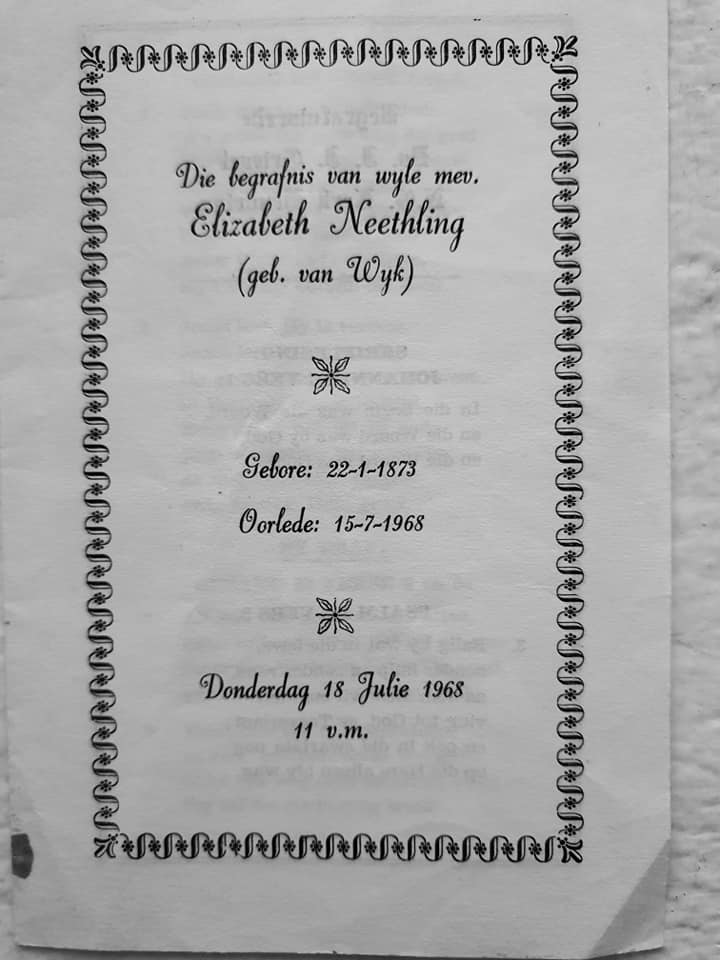 Die begrafnis van wyle mev.
Elizabeth Neethling
(geb. van Wyk)
Gebore: 22-1-1873
Oorlede: 15-7-1968
Donderdag 18 Julie 1968
11 v.m.